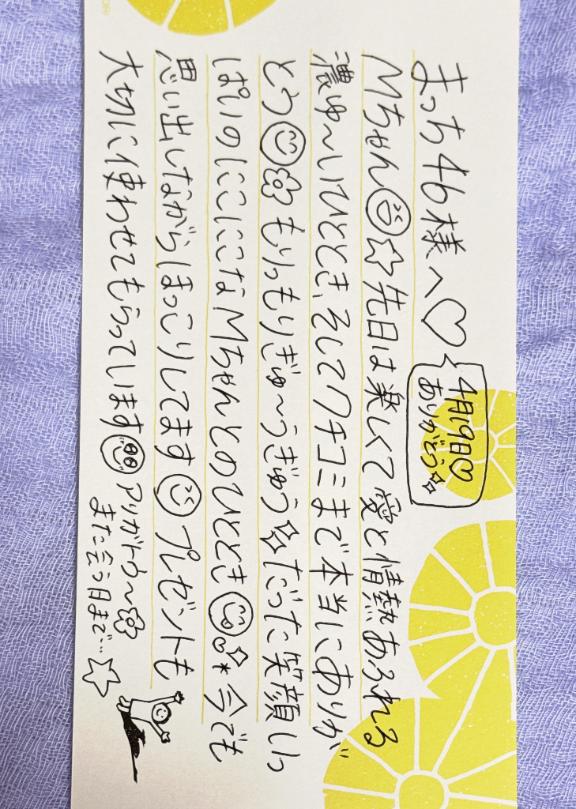 まっち46様へ♡
4月19日♡
ありがとう
Mちゃん☆先日は楽しくて愛と情熱あふれる
濃ゆ〜いひととき、そしてクチコミまで本当にありが
とう もりもりぎゅ〜うぎゅうだった笑顔いっ
ぱいのにこにこなMちゃんとのひととき 今でも
思い出しながらほっこりしてます プレゼントも
大切に使わせてもらっています アリガトウ〜
また会う日まで…☆